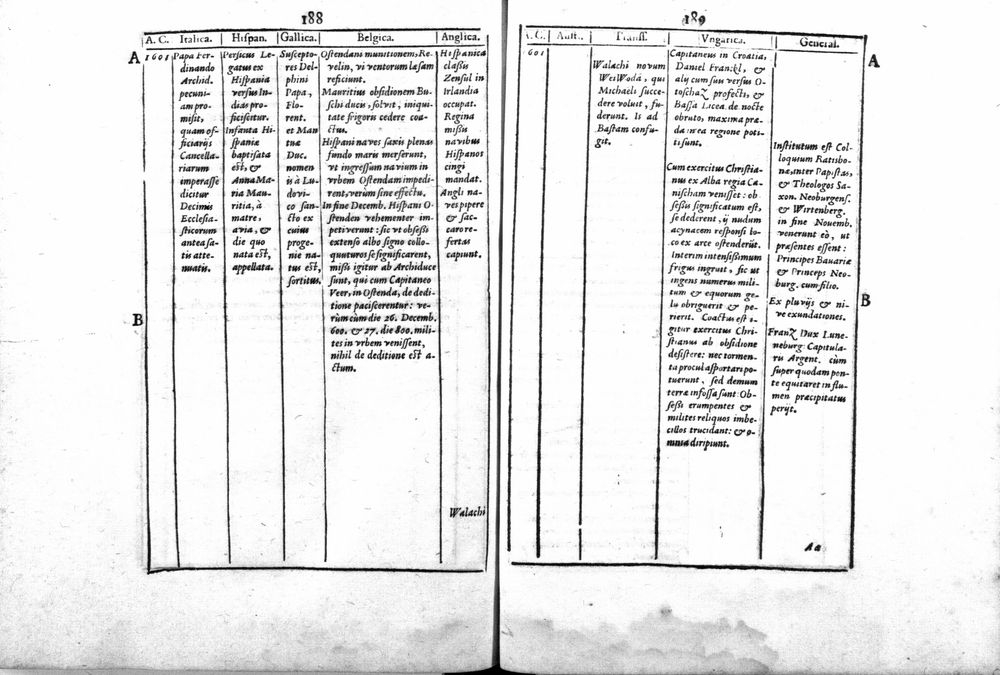 188
A. C.
Italica.
Hiſpan.
Gallica.
Belgica.
Anglica.
A
B
1601
Papa Fer-
dinando
Archid.
pecuni-
am pro-
miſit,
quam of-
ficiarijs
Cancella-
riarum
imperaſſe
dicitur
Decimis
Eccleſia-
ſticorum
antea ſa-
tis atte-
nuatis.
Perſicus Le-
gatus ex
Hiſpania
verſus In-
dias pro-
ficiſcitur.
Infanta Hi-
ſpaniæ
baptiſata
eſt, &
Anna Ma-
ria Mau-
ritia, à
matre,
avia, &
die quo
nata eſt,
appellata.
Suſcepto-
res Del-
phini
Papa,
Flo-
rent.
et Man
tuæ
Duc.
nomen
is à Lu-
dovi-
co ſan-
cto ex
cuius
proge-
nie na-
tus eſt,
ſortitus.
Oſtendani munitionem, Re-
velin, vi ventorum laſam
reficiunt.
Mauritius obſidionem Bu-
ſchi ducis, ſolvit, iniqui-
tate frigoris cedere coa-
ctus.
Hiſpani naves ſaxis plenas
fundo maris merſerunt,
vt ingreſſum navium in
vrbem Oſtendam impedi-
rent, verùm ſine effectu.
In fine Decemb. Hiſpani O-
ſtenden vehementer im-
petiverunt: ſic vt obſeſſi
extenſo albo ſigno collo-
quuturos ſe ſignificarent,
miſſi igitur ab Archiduce
ſunt, qui cum Capitaneo
Veer, in Oſtenda, de dedi-
tione paciſcerentur: ve-
rùm cùm die 26. Decemb.
600. & 27. die 800. mili-
tes in vrbem veniſſent,
nihil de deditione eſt a-
ctum.
Hiſpanica
claſſis
Zenſul in
Irlandia
occupat.
Regina
miſſis
navibus
Hiſpanos
cingi
mandat.
Angli na-
ves pipere
& ſac-
caro re-
fertas
capiunt.
Walachi
189
A. C.
Auſt.
Tranſſ.
Vngarica.
General.
A
B
1601
Walachi novum
WeiWodã, qui
Michaeli ſucce-
dere voluit, fu-
derunt. Is ad
Baſtam confu-
git.
Capitaneus in Croatia,
Daniel Franckl, &
alij cum ſuis verſus O-
toſchaz profecti, &
Baſſa Licea de nocte
obruto, maxima præ-
da in ea regione poti-
ti ſunt.
Cum exercitus Chriſtia-
nus ex Alba regia Ca-
niſcham veniſſet: ob-
ſeſſis ſignificatum eſt,
ſe dederent, ij nudum
acynacem reſponſi lo-
co ex arce oſtenderũt.
Interim intenſiſſimum
frigus ingruit, ſic ut
ingens numerus mili-
tum & equorum ge-
lu obriguerit & pe-
rierit. Coactus eſt i-
gitur exercitus Chri-
ſtianus ab obſidione
deſiſtere: nec tormen-
ta procul aſportari po-
tuerunt, ſed demum
terræ infoſſa ſunt: Ob-
ſeſſi erumpentes &
milites reliquos imbe-
cillos trucidant: & o-
mnia diripiunt.
Inſtitutum eſt Col-
loquium Ratisbo-
næ, inter Papiſtas,
& Theologos Sa-
xon. Neoburgenſ.
& Wirtenberg.
in fine Novemb.
venerunt eò, ut
præſentes eſſent:
Principes Bavariæ
& Princeps Neo-
burg. cum filio.
Ex pluvijs & ni-
ve exundationes.
Franz Dux Lune-
neburg Capitula-
ris Argent. cùm
ſuper quodam pon-
te equitaret in flu-
men præcipitatus
perijt.
Aa